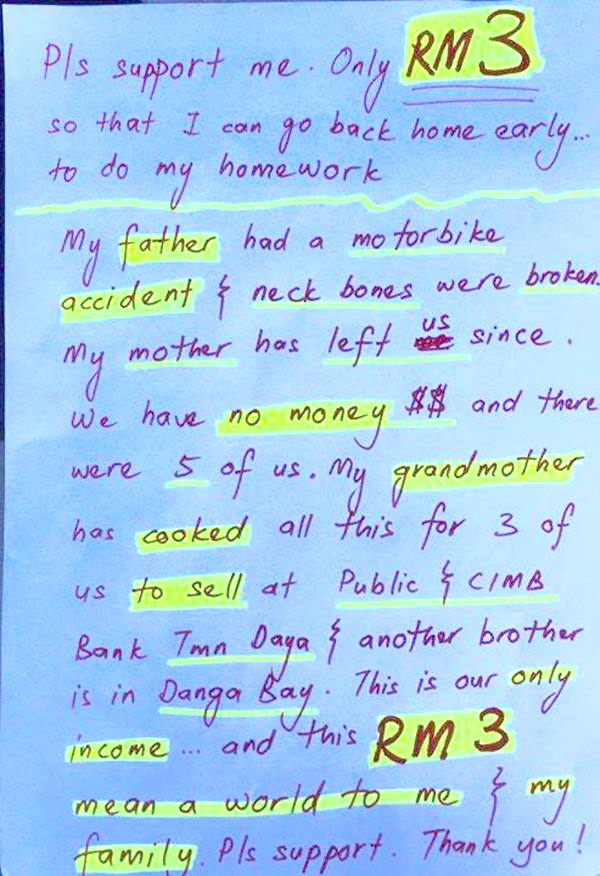 Pls support me. Only RM 3
so that I can go back home early...
to do my homework
My father had a motorbike
accident & neck bones were broken.
My mother has left us since.
We have no money $$ and there
were 5 of us. My grandmother
has cooked all this for 3 of
us to sell at Public & CIMB
Bank Tmn Daya & another brother
is in Danga Bay. This is our only
income... and this RM 3
mean a world to me & my
family. Pls support. Thank you!